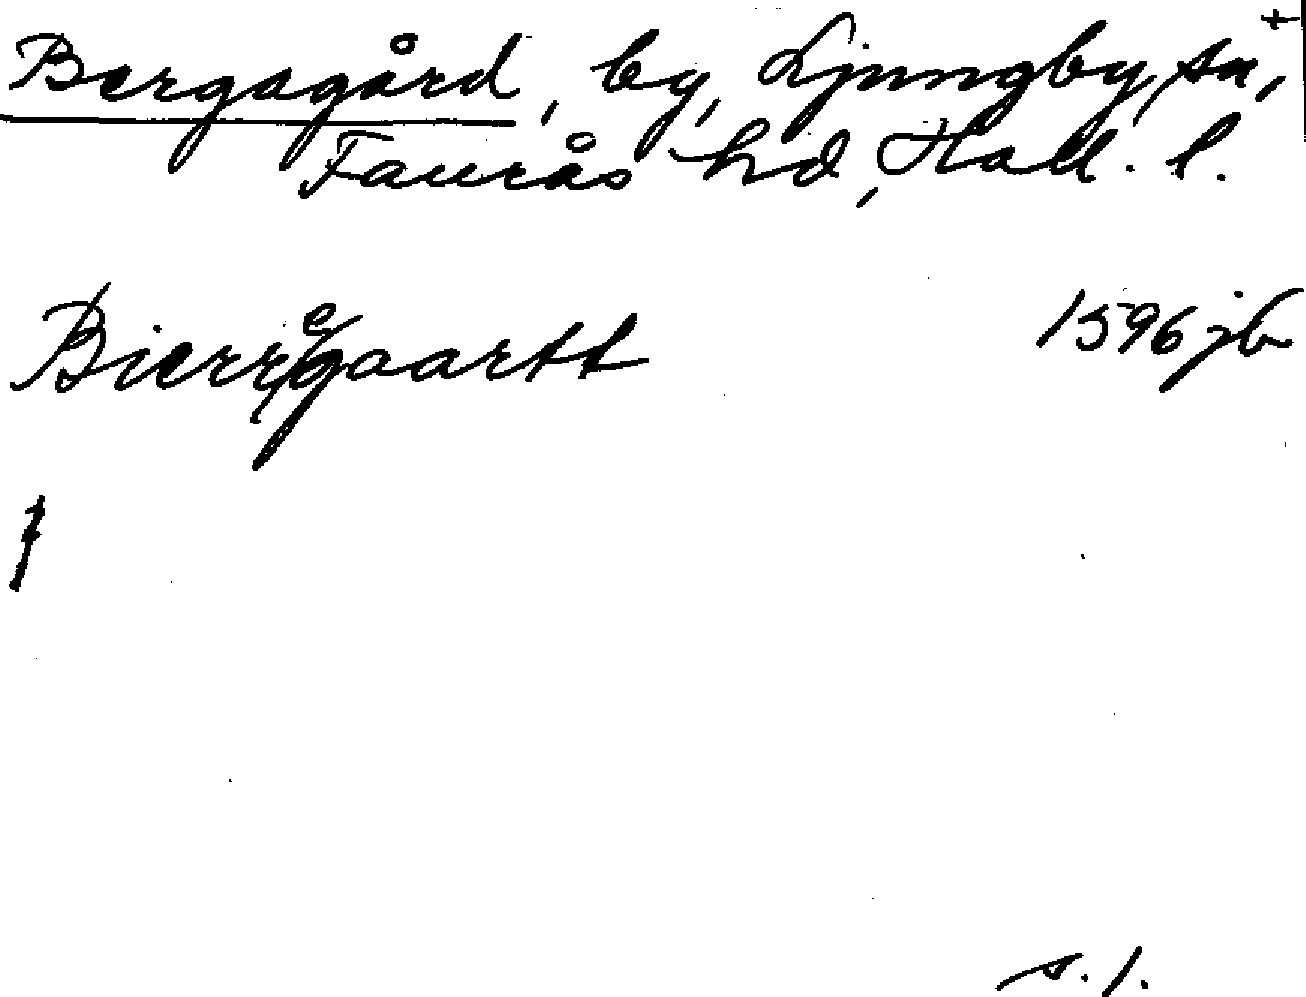 +
Bergagård, by, Ljungby sn,
Faurås hd, Hall. l.
Bierregaartt 1596 jb
s. 1.